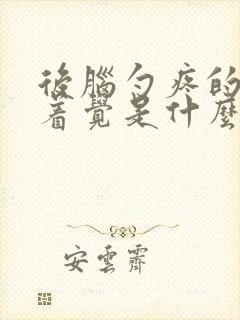 後腦勺疼的
着覺是什麼
安雲霽